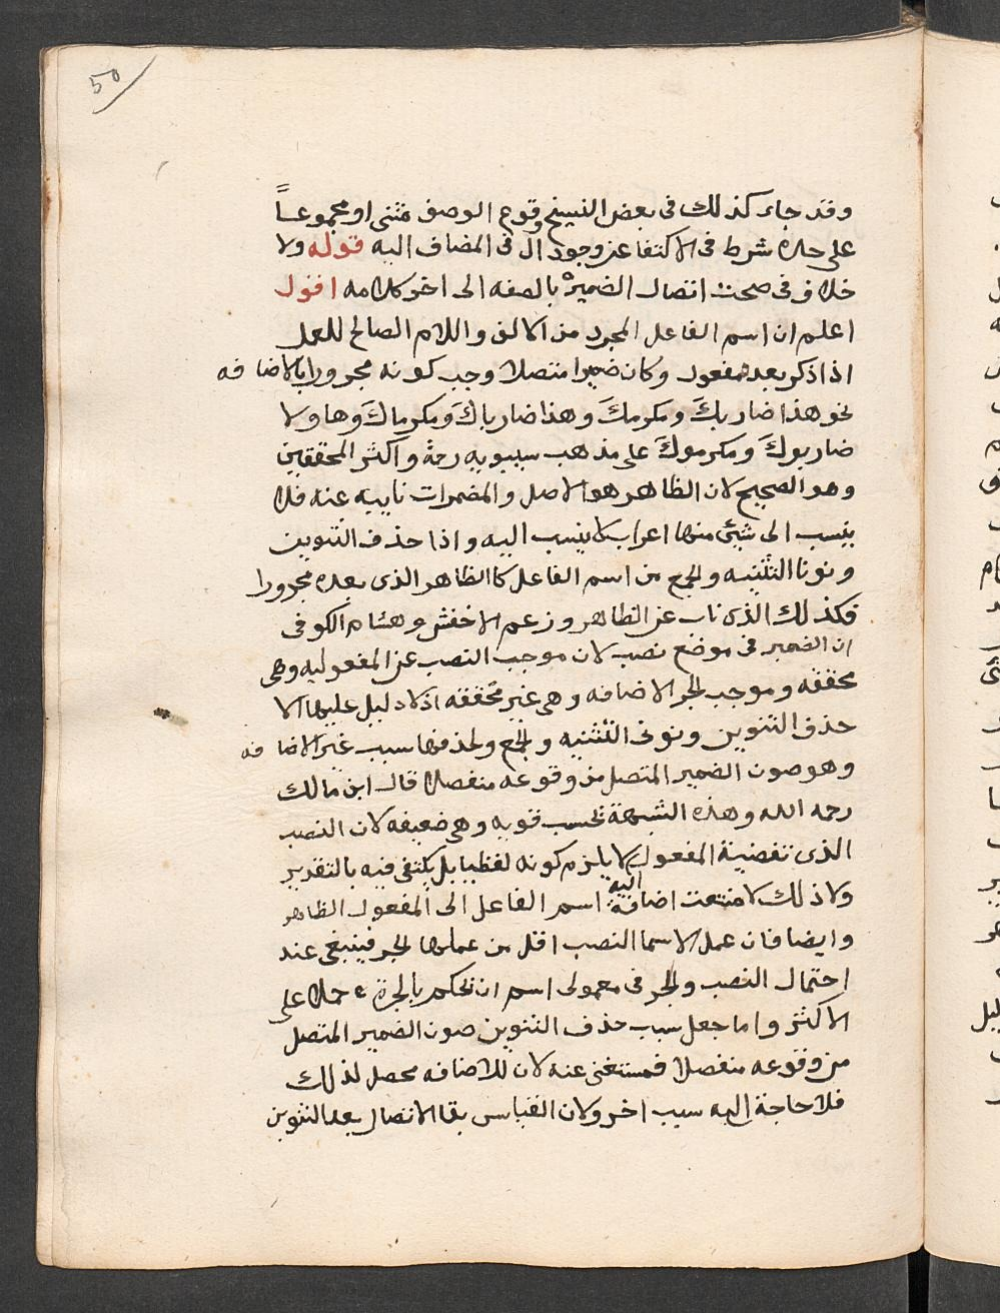 50
وقد جاء كذلك فى بعض النسخ وقوع الوصف مثنى او مجموعاً
على حده شرط فى الاكتفا عن وجود ال فى المضاف اليه قوله ولا
خلاف فى صحت اتصال الضمير بالصفه الى اخر كلامه اقول
اعلم ان اسم الفاعل المجرد من الالف واللام الصالح للعمل
اذا ذكر بعده مفعول وكان ضميرا متصلا وجب كونه مجرورا بالاضافه
نحو هذا ضاربكَ ومكرمكَ وهذا ضارباكَ ومكرماكَ وهاولا
ضاربوكَ ومكرموكَ على مذهب سيبويه رحة واكثر المحققين
وهو الصحيح لان الظاهر هو الاصل والمضمرات نايبه عنه فلا
ينسب الى شيئ منها اعراب لا ينسب اليه واذا حذف التنوين
ونونا التثنيه والجمع من اسم الفاعل كا الظاهر الذى بعده مجرورا
فكذلك الذى ناب عن الظاهر وزعم الاخفش وهشام الكوفى
ان الضمير فى موضع نصب لان موجب النصب عن المفعوليه وهى
محققه وموجب الجر الاضافه وهى غير محققه اذ لا دليل عليها الا
حذف التنوين ونونى التثنيه والجمع ولحذفها سبب غير الاضافه
وهو صون الضمير المتصل من وقوعه منفصلا قال ابن مالك
رحمه الله وهذه الشبهة تحسب قويه وهى ضعيفه لان النصب
الذى تقضية المفعوليه لا يلزم كونه لفظيا بل يكتفى فيه بالتقدير
ولا ذلك لامتنعت اضافة اسم الفاعل الى المفعول الظاهر
وايضا فان عمل الاسما النصب اقل من عملها الجر فينبغى عند
احتمال النصب والجر فى معمولى اسم ان تحكم بالجرة حملا على
الاكثر واما جعل سبب حذف التنوين صون الضمير المتصل
من وقوعه منفصلا فمستغنى عنه لان للاضافه محصل لذلك
فلا حاجة اليه سبب اخر ولان القياس بقا الاتصال بعد التنوين